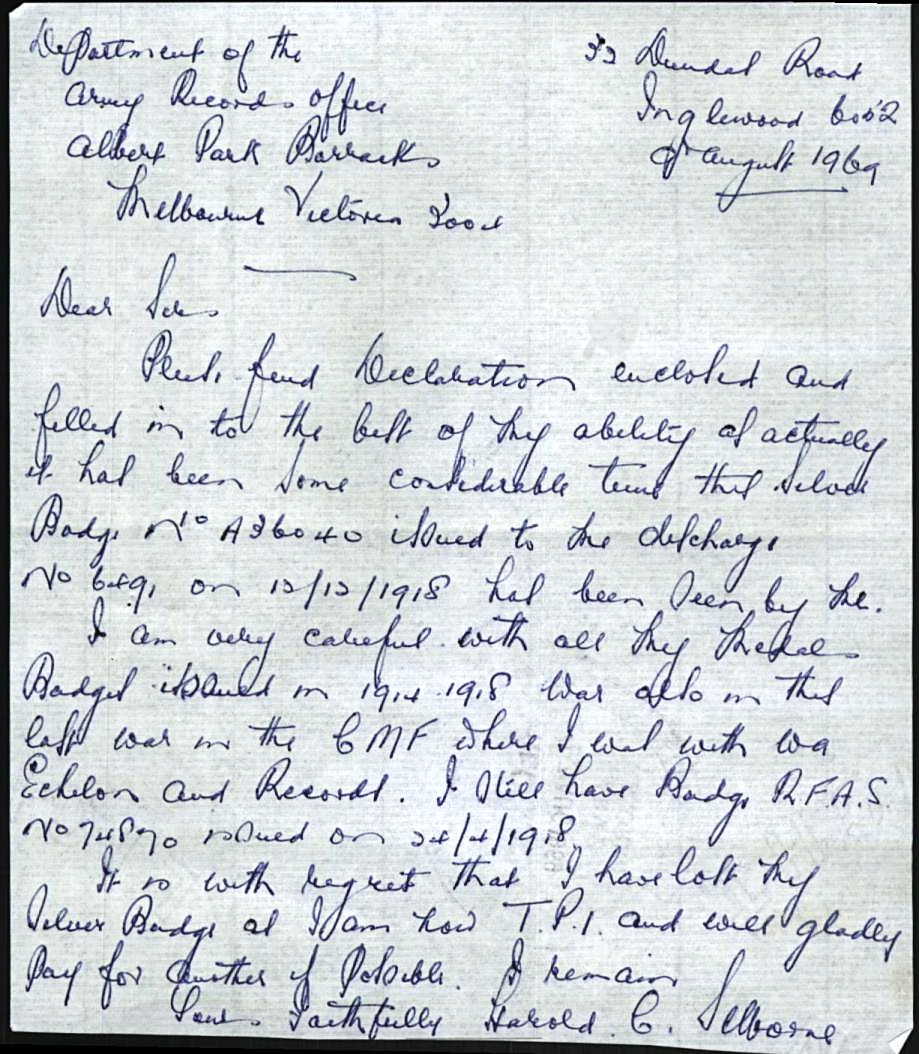 Department of the
Army Records office
Albert Park Barracks
Melbourne Victoria 3004
33 Dundas Road
Inglewood 6052
August 1969
Dear Sirs
Please find Declaration enclosed and
filled in to the best of my ability as actually
it has been some considerable time this silver
Badge No A36040 issued to the discharge
No 6491 on 12/12/1918 has been seen by me.
I am very careful with all my medals
Badges issued in 1914 1918 War also in this
last war in the CMF where I was with WA
Echelon and Records. I still have Badge R.F.A.S.
No 74870 issued on 24/4/1918
It is with regret that I have lost my
Silver Badge as I am now T.P.I. and will gladly
Pay for another if Possible. I remain
Yours Faithfully Harold C. Selborne